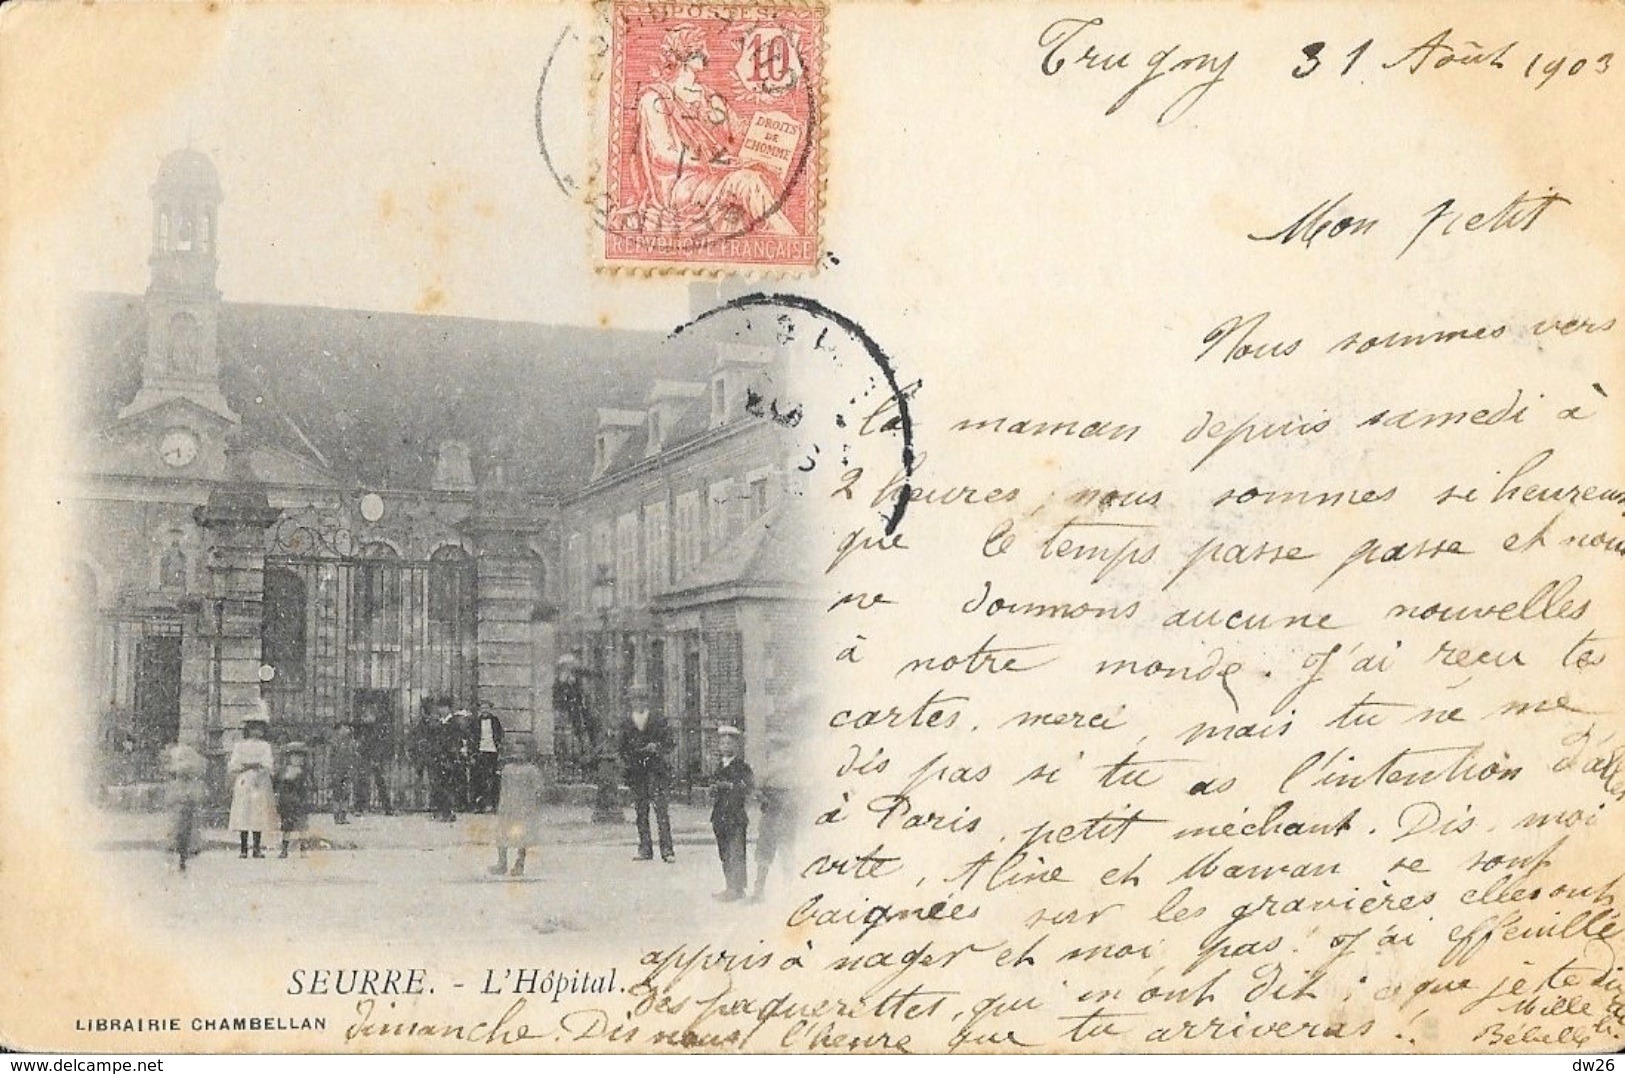 POSTES
10
DROITS
DE
L'HOMME
REPUBLIQUE FRANÇAISE
SEURRE
Trugny 31 Août 1903
Mon petit
Nous sommes vers
la maman depuis samedi à
2 heures, nous sommes si heureux
que le temps passe passe et nous
ne donnons aucune nouvelles
à notre monde. J'ai reçu tes
cartes, merci, mais tu ne me
dis pas si tu as l'intention d'aller
à Paris, petit méchant. Dis-moi
vite, Aline et Maman se sont
baignées sur les gravières elles ont
appris à nager et moi pas. J'ai effeuillé
des paquerettes, qui m'ont dit : que je te dis
dimanche. Dis nous l'heure que tu arriveras !
Mille
Bébelle
SEURRE. - L'Hôpital.
LIBRAIRIE CHAMBELLAN
dw26